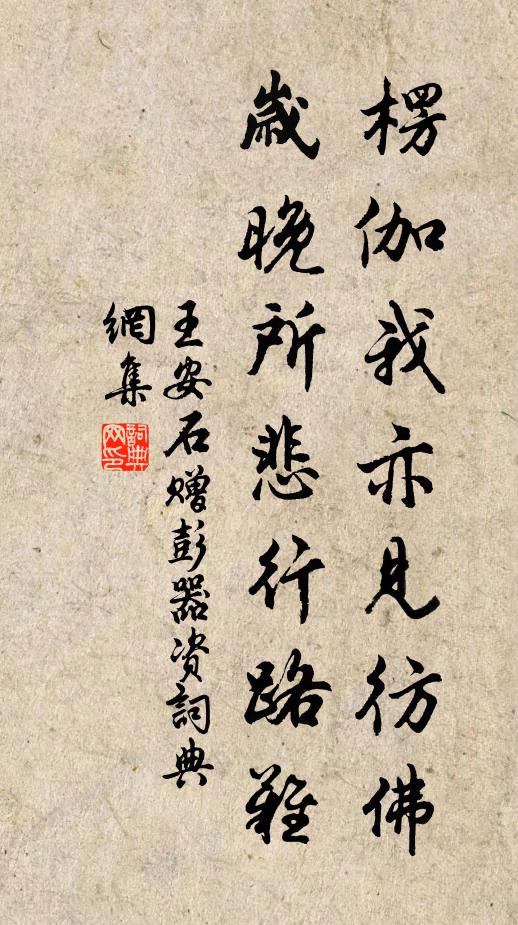 楞伽我亦見彷佛
歲晚所悲行路難
王安石赠彭器资詞典
網集
詞典
网印